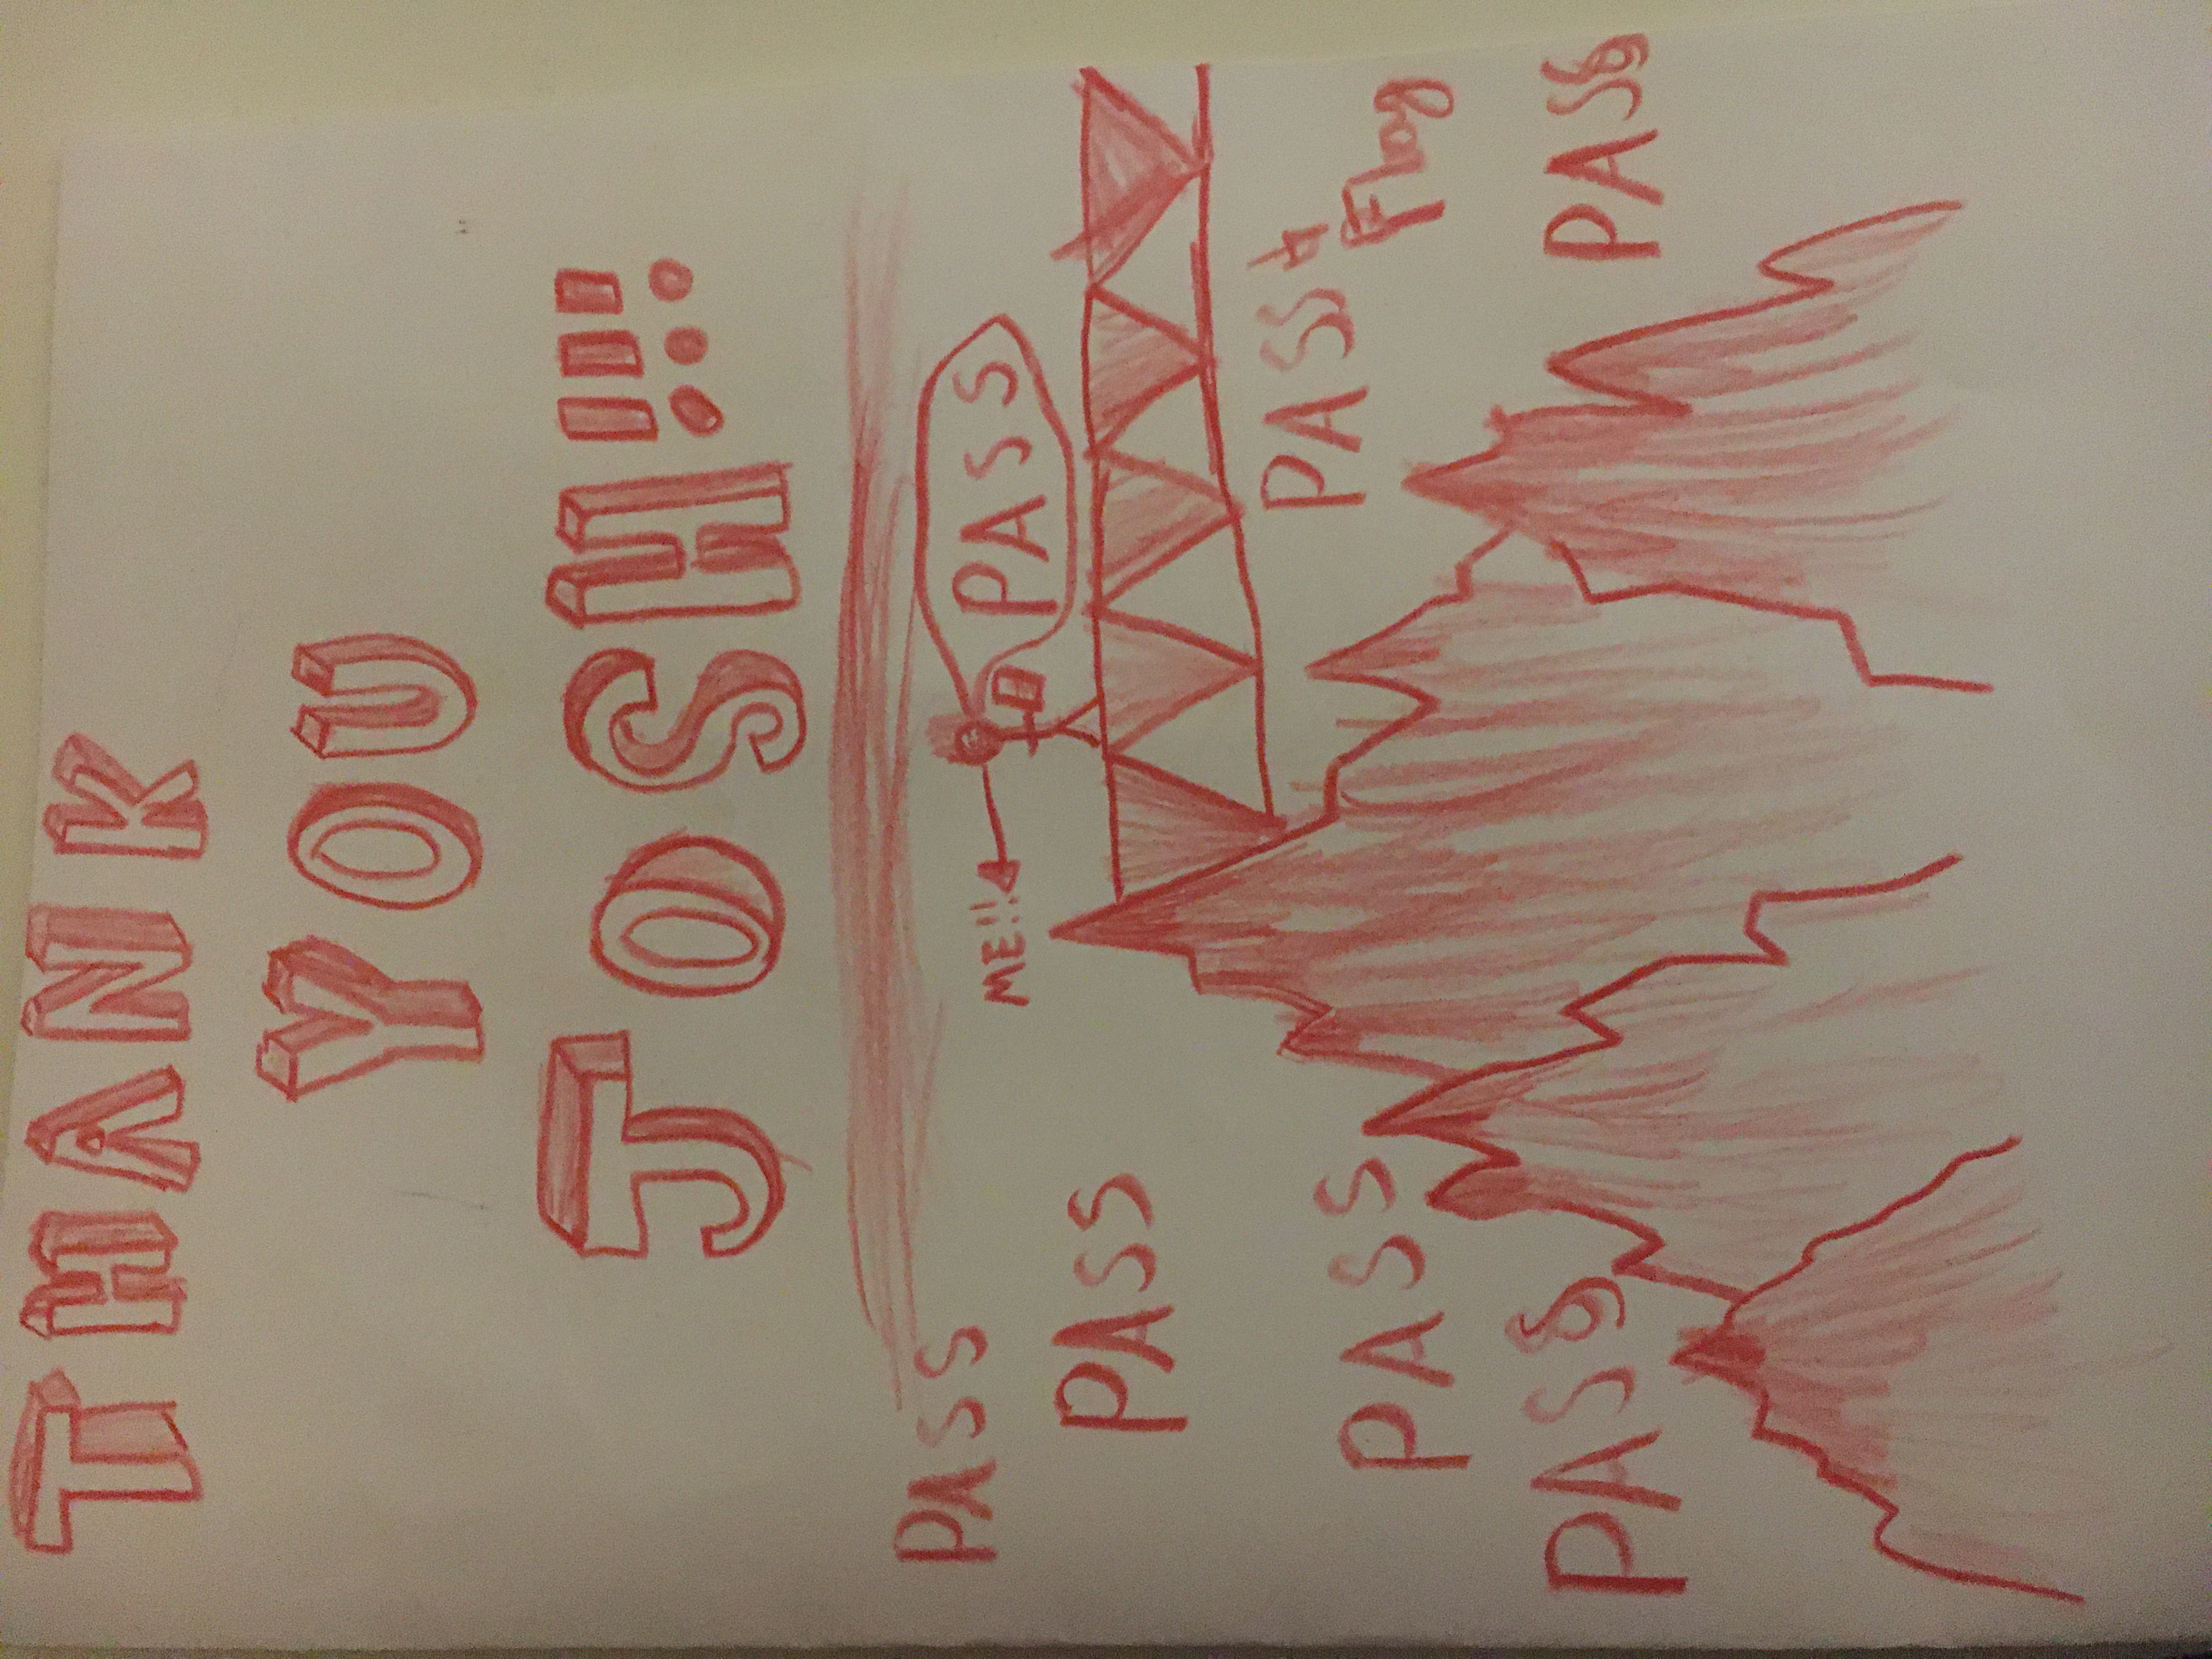 THANK
YOU
JOSH!!!
PASS
ME!!
PASS
PASS
PASS
PASS &
Flag
PASS
PASS